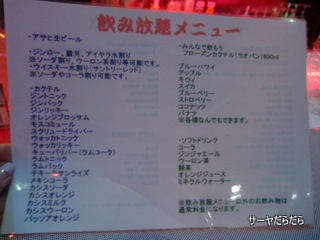 飲み放題メニュー
・アサヒ生ビール
・ジンロー、鏡月、アイヤラ水割り
※ソーダ割り、ウーロン茶割り等可能です。
・ウイスキー水割り(サントリーレッド)
※ソーダやコーラ割り可能です。
・カクテル
ジントニック
ジンバック
ジンリッキー
オレンジブロッサム
モスコミュール
スクリュードライバー
ウォッカトニック
ウォッカリッキー
キューバリバー(ラムコーク)
ラムトニック
ラムバック
テキーラサンライズ
メキシコーラ
カシスソーダ
カシスオレンジ
カシスミルク
カシスウーロン
パッソアオレンジ
・みんなで飲もう
フローズンカクテル(ラオパン)600ml
ブルーハワイ
アップル
キウィ
スイカ
ブルーベリー
ストロベリー
ココナッツ
バナナ
※各種なんでもできます。
・ソフトドリンク
コーラ
ジンジャエール
ウーロン茶
緑茶
オレンジジュース
ミネラルウォーター
※飲み放題メニュー以外のお飲み物は
通常料金になります。
サーヤだらだら